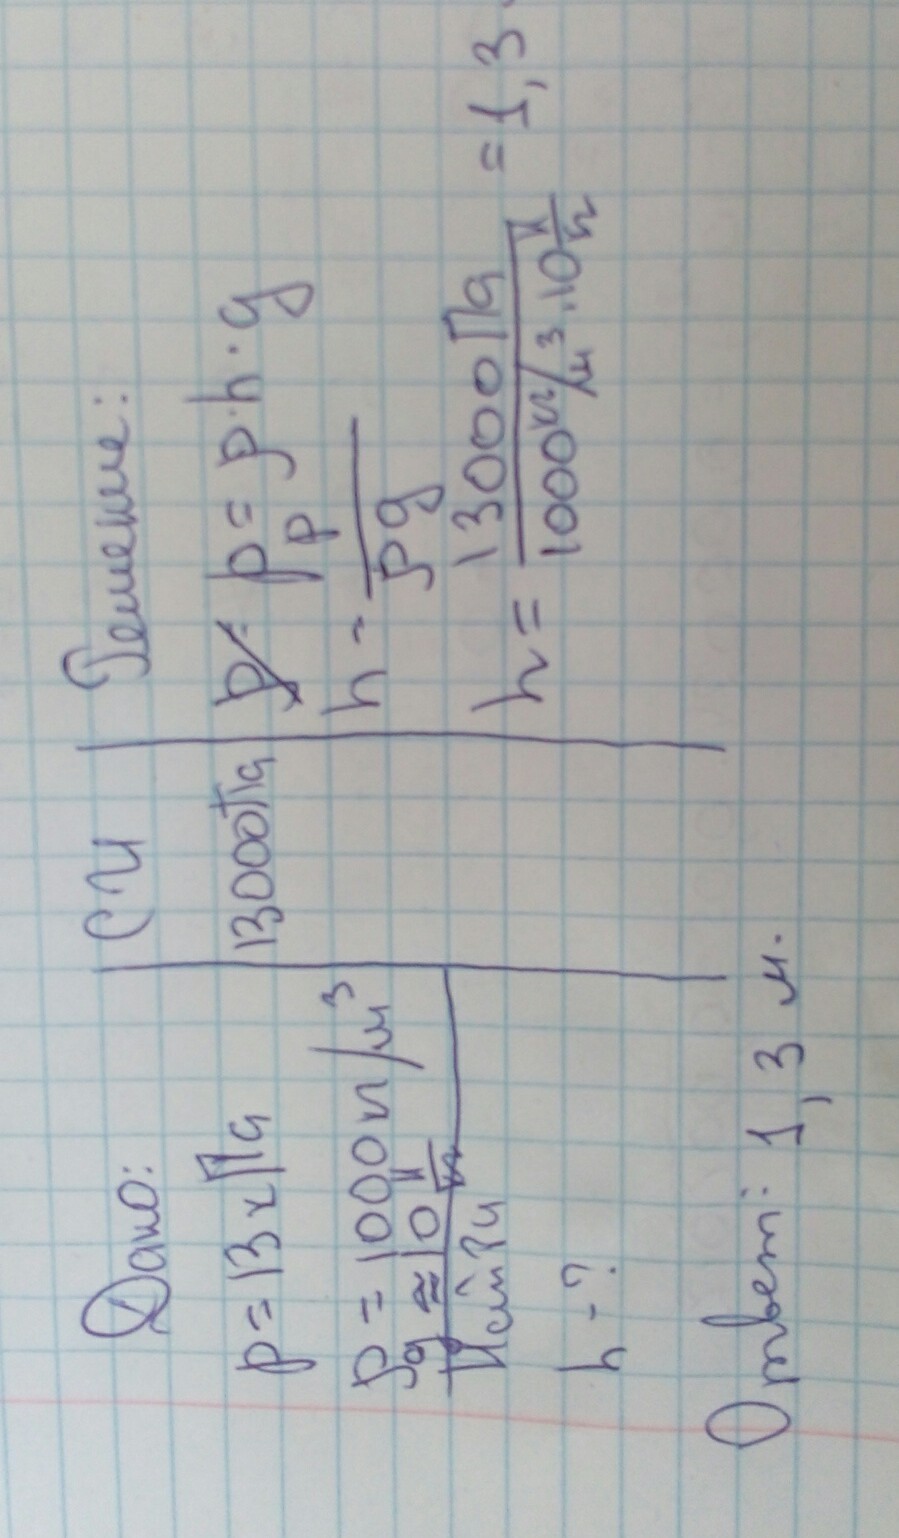 Дано:
p = 13 кПа
ρ = 1000 кг/м³
g ≈ 10 Н/кг
Найти
h - ?
СИ
13000 Па
Решение:
p = ρ · h · g
h = p / ρg
h = 13000 Па / 1000 кг/м³ · 10 Н/кг = 1,3
Ответ: 1,3 м.